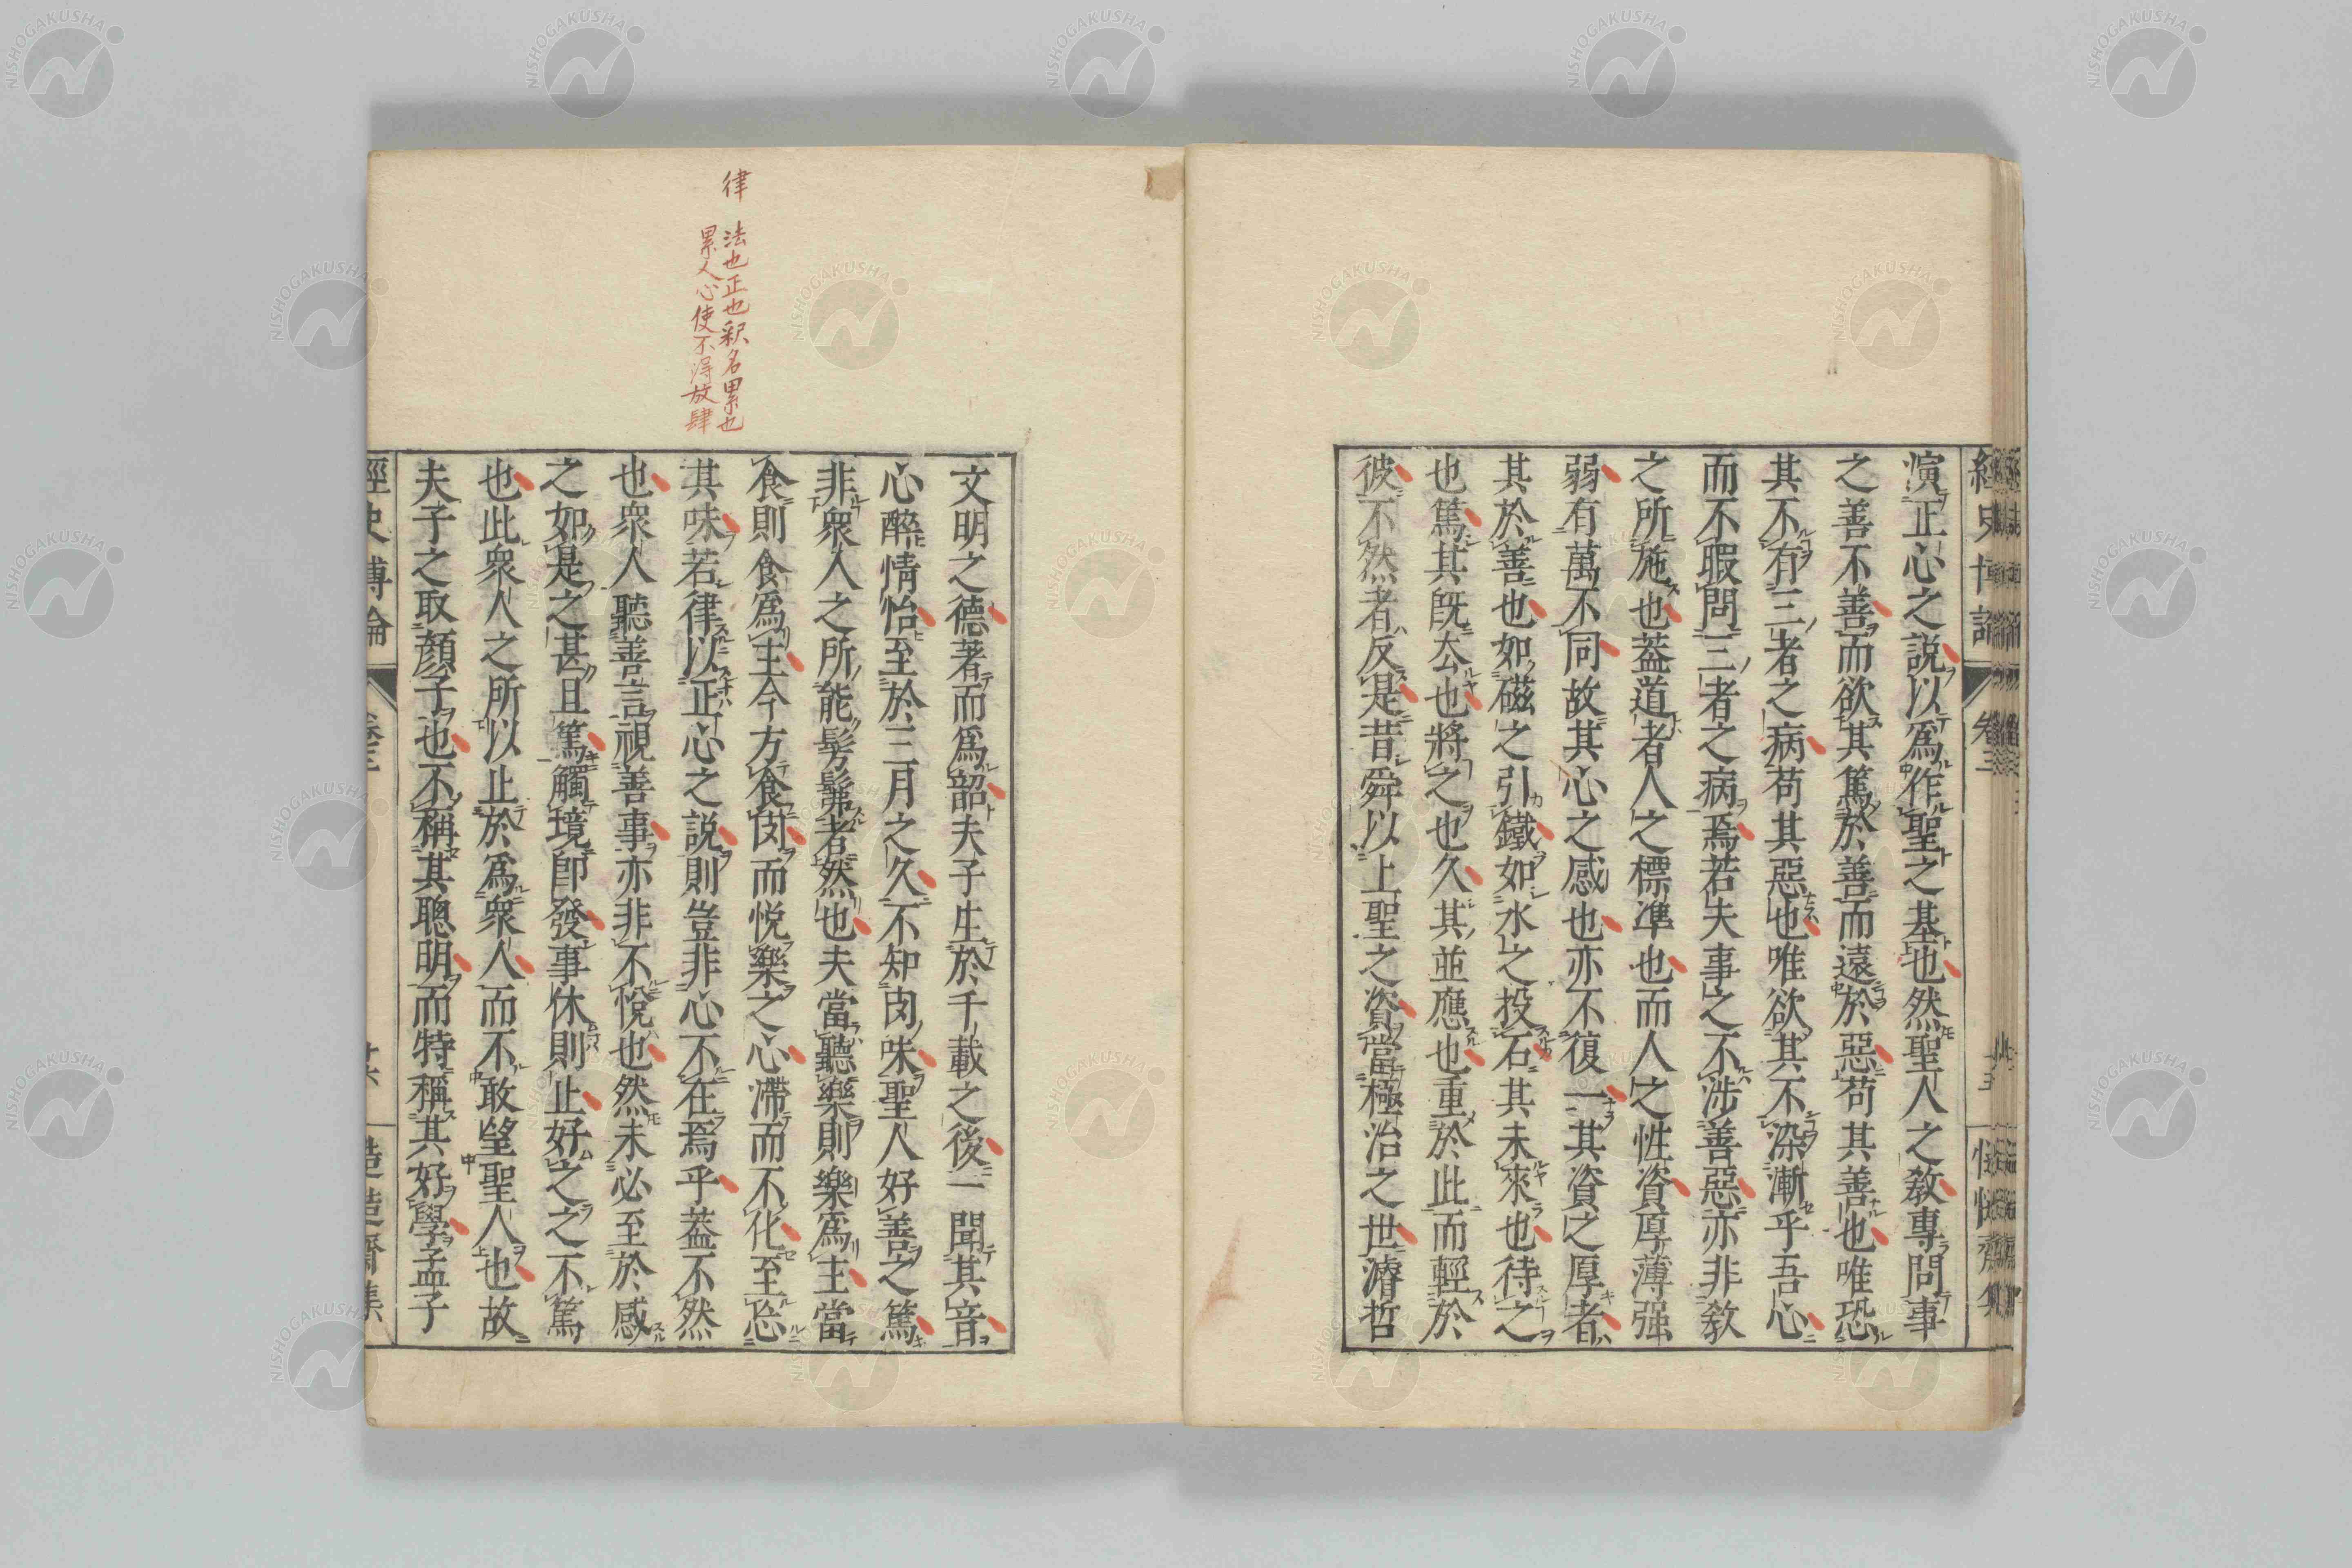 演正心之説以爲作聖之基也然聖人之敎專問事
之善不善而欲其篤於善而遠於惡苟其善也唯恐
其不有三者之病苟其惡也唯欲其不染漸乎吾心
而不暇問三者之病焉若夫事之不渉善惡亦非敎
之所施也葢道者人之標準也而人之性資厚薄强
弱有萬不同故其心之感也亦不復一其資之厚者
其於善也如磁之引鐵如水之投石其未來也待之
也篤其旣去也將之也久其並應也重於此而輕於
彼不然者反是昔舜以上聖之資當極治之世濬哲
律 法也正也釈名累也
累人心使不得放肆
文明之德著而爲韶夫子生於千載之後一聞其音
心醉情怡至於三月之久不知肉味聖人好善之篤
非衆人之所能髣髴者然也夫當聽樂則樂爲主當
食則食爲主今方食肉而悦樂之心滯而不化至忘
其味若律以正心之説則豈非心不在焉乎葢不然
也衆人聽善言視善事亦非不悅也然未必至於感
之如是之甚且篤觸境卽發事休則止好之之不篤
也此衆人之所以止於爲衆人而不敢望聖人也故
夫子之取顏子也不稱其聰明而特稱其好學孟子
經史博論
卷三
十六